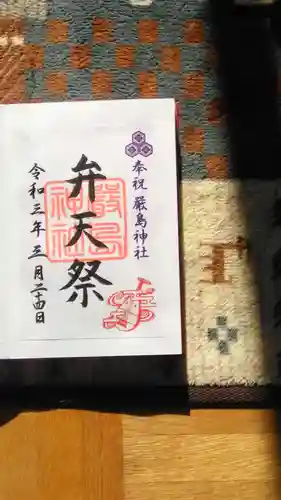 奉祝 厳島神社
弁天祭
厳島
神社
令和三年三月二十四日